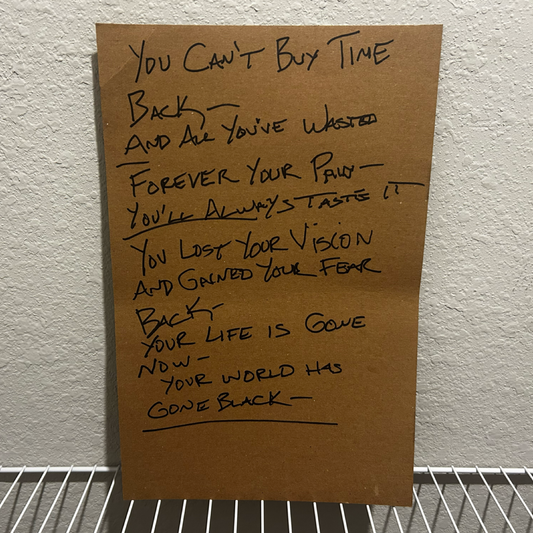 YOU CAN'T BUY TIME
BACK—
AND ALL YOU'VE WASTED
FOREVER YOUR PAIN—
YOU'LL ALWAYS TASTE IT
YOU LOST YOUR VISION
AND GAINED YOUR FEAR
BACK—
YOUR LIFE IS GONE
NOW—
YOUR WORLD HAS
GONE BLACK—